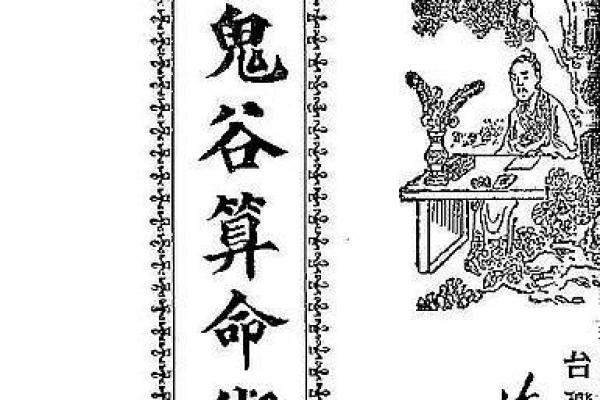 鬼谷算命
台